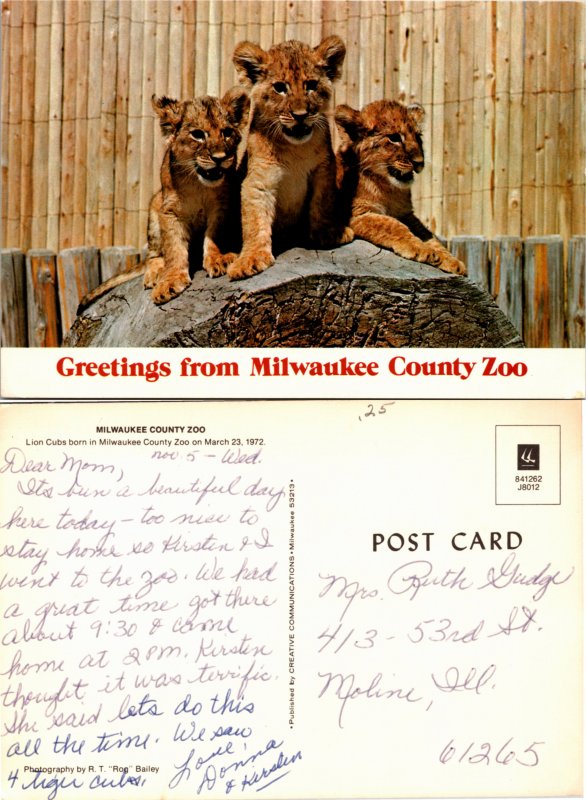 Greetings from Milwaukee County Zoo
.25
MILWAUKEE COUNTY ZOO
Lion Cubs born in Milwaukee County Zoo on March 23, 1972.
Nov. 5 - Wed.
Dear Mom,
Its bun a beautiful day
here today - too nice to
stay home so Kirsten & I
went to the zoo. We had
a great time got there
about 9:30 & came
home at 2 PM. Kirsten
thought it was terrific.
She said lets do this
all the time. We saw
4 tiger cubs.
Love,
Donna
& Kirsten
Photography by R. T. "Rog" Bailey
•Published by CREATIVE COMMUNICATIONS • Milwaukee 53213•
841262
J8012
POST CARD
Mrs. Ruth Gudge
413 - 53rd St.
Moline, Ill.
61265